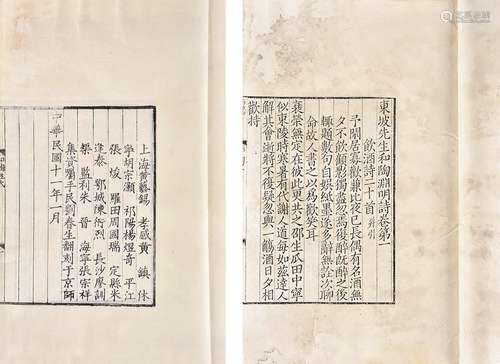 東坡先生和陶淵明詩卷第一
飲酒詩二十首 并引
予閒居寡歡兼比夜已長偶有名酒無
夕不飲顧影獨盡忽焉復醉既醉之後
輒題數句自娛紙墨遂多辭無詮次聊
命故人書之以為歡笑耳
衰榮無定在彼此更共之邵生瓜田中寧
似東陵時寒暑有代謝人道每如茲達人
解其會逝將不復疑忽與一觴酒日夕相
歡持
上海黃藝錫 孝感黃鎮 休
寧胡宗灝 祁陽楊煜奇 平江
張煥 羅田周國瑞 定縣米
逢泰 鄂城陳衍烈 長沙廖訓
榘 監利朱晉 海寧張宗祥
集資囑手民劉春生翻刻于京師
中華民國十一年一月